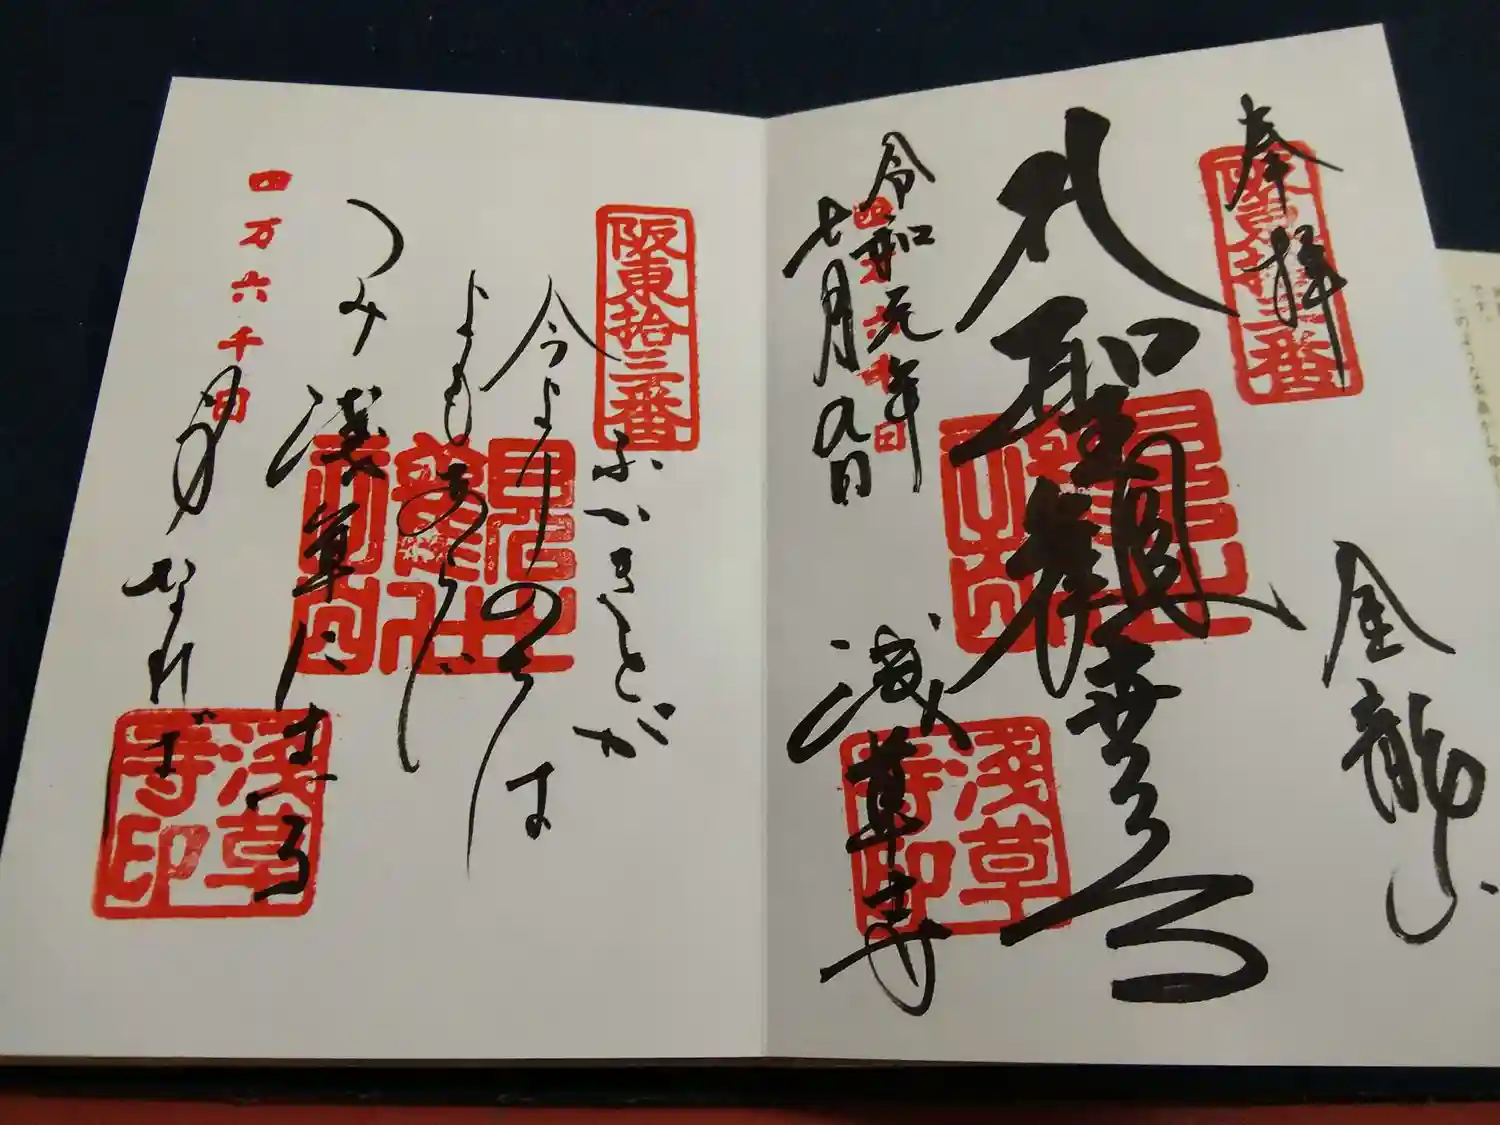 奉拝
阪東拾三番
金龍山
大聖観世音
令和元年
七月九日
四万六千日
浅草寺
淺草
寺印
阪東拾三番
ふかきとが
今よりのちは
よもあらじ
つみ浅草にまいる
身なれば
四万六千日
淺草
寺印